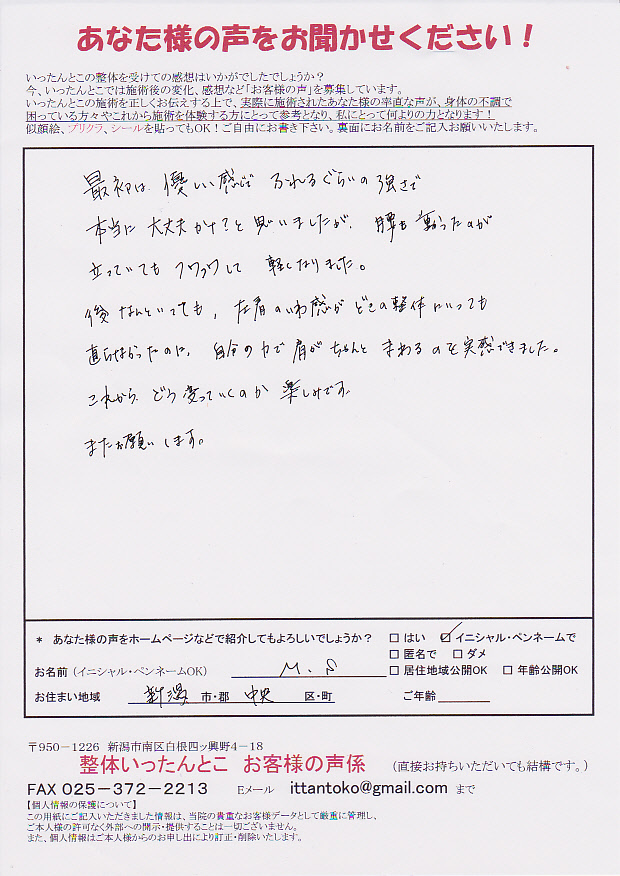 あなた様の声をお聞かせください！
いったんとこの整体を受けての感想はいかがでしたでしょうか？
今、いったんとこでは施術後の変化、感想など「お客様の声」を募集しています。
いったんとこの施術を正しくお伝えする上で、実際に施術されたあなた様の率直な声が、身体の不調で
困っている方々やこれから施術を体験する方にとって参考となり、私にとって何よりの力となります！
似顔絵、プリクラ、シールを貼ってもOK！ご自由にお書き下さい。裏面にお名前をご記入お願いいたします。
最初は、優しい感じで ふれるぐらいの強さで
本当に大丈夫かナ？と思いましたが、腰も重かったのが
立っていてもフワフワして 軽くなりました。
後なんといっても、左肩のいわ感が どこの整体にいっても
直らなかったのに、自分の力で肩がちゃんと まわるのを実感できました。
これから、どう変っていくのか 楽しみです。
またお願いします。
* あなた様の声をホームページなどで紹介してもよろしいでしょうか？ □ はい □ イニシャル・ペンネームで
□ 匿名で □ ダメ
お名前（イニシャル・ペンネームOK） M.S □ 居住地域公開OK □ 年齢公開OK
お住まい地域 新潟 市・郡 中央 区・町 ご年齢
〒950－1226 新潟市南区白根四ッ興野4－18
整体いったんとこ お客様の声係 （直接お持ちいただいても結構です。）
FAX 025－372－2213 Eメール ittantoko@gmail.com まで
【個人情報の保護について】
この用紙にご記入いただきました情報は、当院の貴重なお客様データとして厳重に管理し、
ご本人様の許可なく外部への開示・提供することは一切ございません。
また、個人情報はご本人様からのお申し出により訂正・削除いたします。